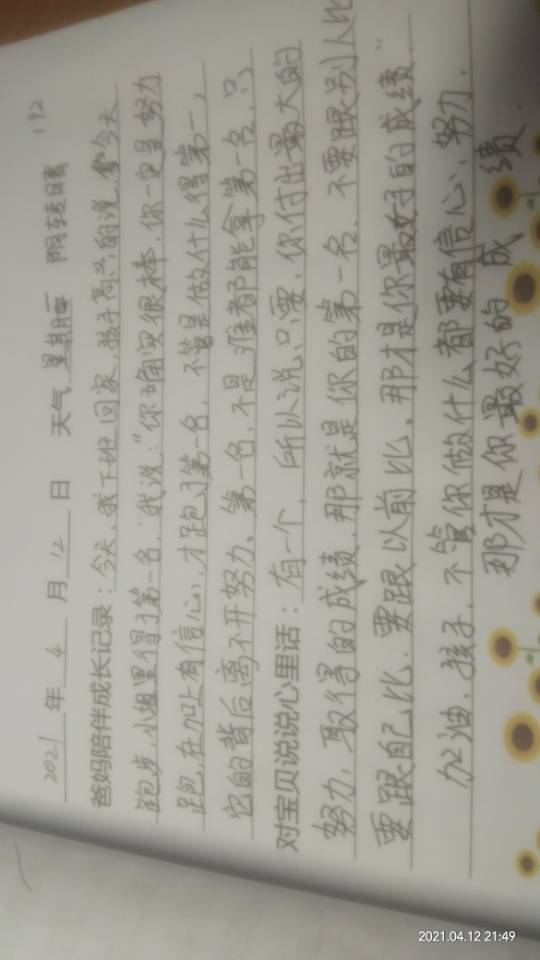 192
2021年 4 月 12 日 天气 星期一 阴转晴
爸妈陪伴成长记录：今天，我下班回家，孩子高兴的说，今天
跑步，小组里得了第一名，我说：“你确实很棒，你一定是努力
跑，在加上有信心，才跑了第一名，不管是做什么得第一，
它的背后离不开努力、第一名，不是谁都能拿第一名，只
对宝贝说说心里话：有一个，所以说，只要，你付出最大的
努力，取得的成绩，那就是你的第一名，不要跟别人比
要跟自己比，要跟以前比，那才是你最好的成绩。”
加油，孩子，不管你做什么都要有信心，努力，
那才是你最好的成绩.
2021.04.12 21:49